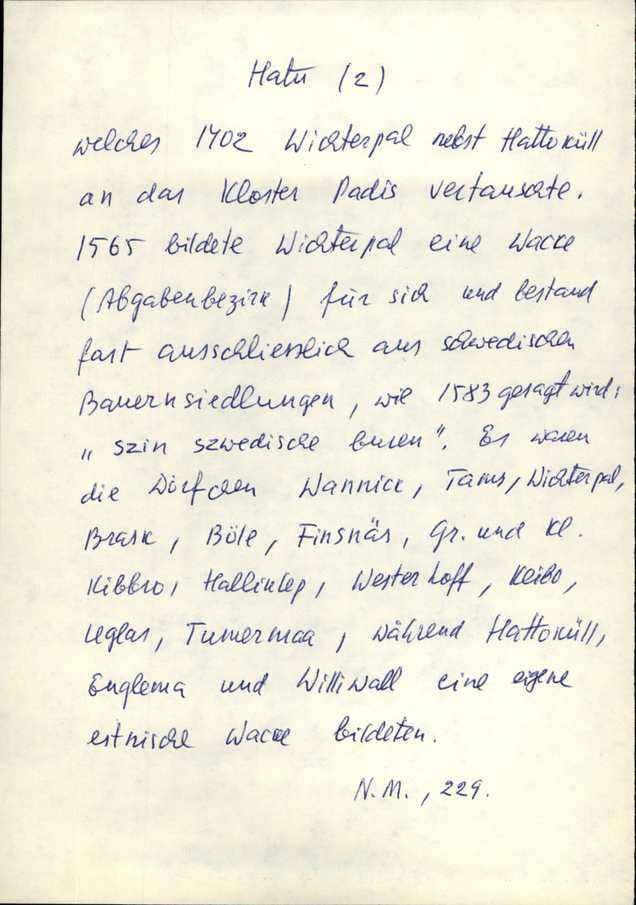 Hatu (2)
welches 1402 Wichterpal nebst Hattoküll
an das Kloster Padis vertauschte.
1565 bildete Wichterpal eine Wacke
(Abgabenbezirk) für sich und bestand
fast ausschliesslich aus schwedischen
Bauernsiedlungen, wie 1583 gesagt wird:
„szin szwedische buren". Es waren
die Dörfchen Wannick, Tams, Wichterpal,
Brask, Böle, Finsnäs, Gr. und Kl.
Kibbro, Hallinkep, Westerhoff, Keibo,
Uglas, Tumermaa, während Hattoküll,
Englema und Williwall eine eigene
estnische Wacke bildeten.
N.M., 229.